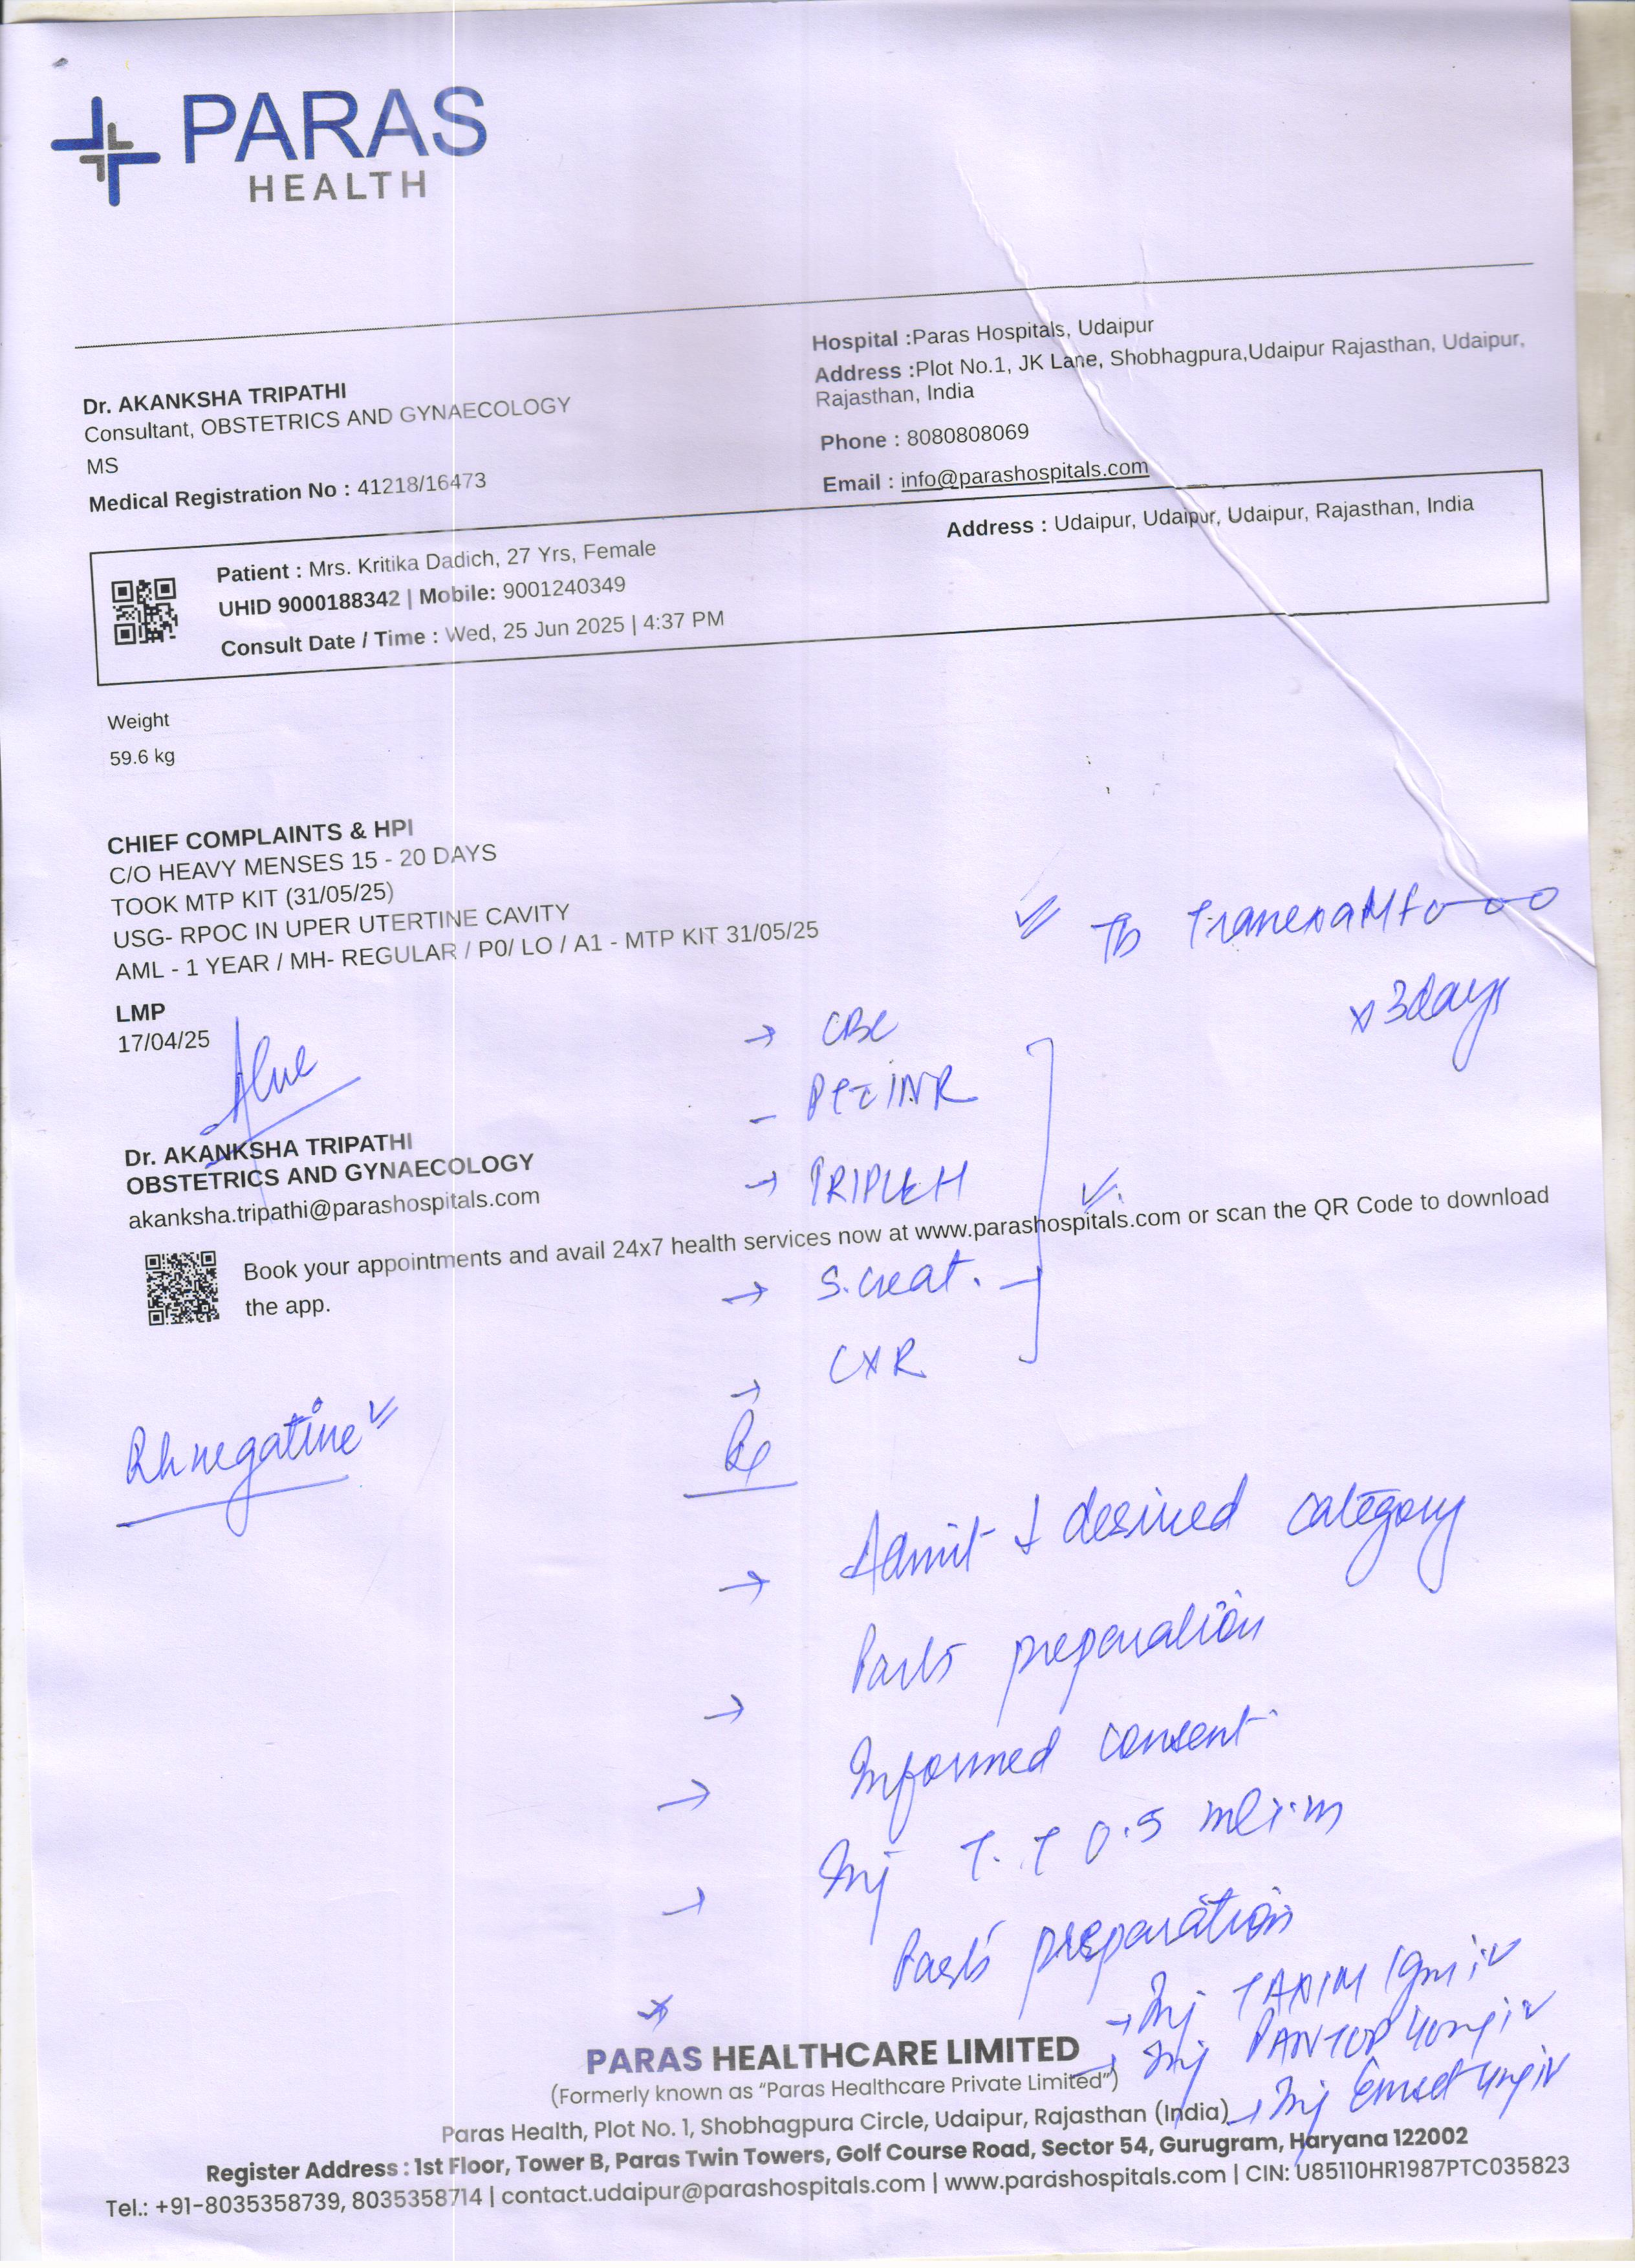 PARAS
HEALTH
Hospital :Paras Hospitals, Udaipur
Address :Plot No.1, JK Lane, Shobhagpura,Udaipur Rajasthan, Udaipur,
Rajasthan, India
Phone : 8080808069
Email : info@parashospitals.com
Dr. AKANKSHA TRIPATHI
Consultant, OBSTETRICS AND GYNAECOLOGY
MS
Medical Registration No : 41218/16473
Patient : Mrs. Kritika Dadich, 27 Yrs, Female
UHID 9000188342 | Mobile: 9001240349
Consult Date / Time : Wed, 25 Jun 2025 | 4:37 PM
Address : Udaipur, Udaipur, Udaipur, Rajasthan, India
Weight
59.6 kg
CHIEF COMPLAINTS & HPI
C/O HEAVY MENSES 15 - 20 DAYS
TOOK MTP KIT (31/05/25)
USG- RPOC IN UPER UTERTINE CAVITY
AML - 1 YEAR / MH- REGULAR / P0/ LO / A1 - MTP KIT 31/05/25
LMP
17/04/25
Tb
x 3days
→ CBC
INR
→ TRIPLE H
→ S.creat.
→ CXR
Dr. AKANKSHA TRIPATHI
OBSTETRICS AND GYNAECOLOGY
akanksha.tripathi@parashospitals.com
Book your appointments and avail 24x7 health services now at www.parashospitals.com or scan the QR Code to download
the app.
Rh negative
Rx
→ Admit desired category
→ Parts preparation
→ Informed consent
→ Inj T.T 0.5 ml i.m
Parts preparation
→ Inj 1gm iv
→ Inj PANTOP 40mg iv
→ Inj Emset iv
PARAS HEALTHCARE LIMITED
(Formerly known as “Paras Healthcare Private Limited”)
Paras Health, Plot No. 1, Shobhagpura Circle, Udaipur, Rajasthan (India)
Register Address : 1st Floor, Tower B, Paras Twin Towers, Golf Course Road, Sector 54, Gurugram, Haryana 122002
Tel.: +91-8035358739, 8035358714 | contact.udaipur@parashospitals.com | www.parashospitals.com | CIN: U85110HR1987PTC035823